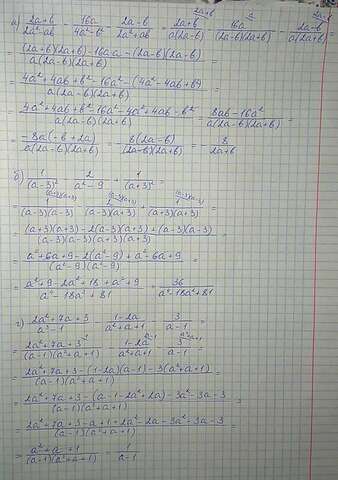 а) (2a+b)/(2a²-ab) - 16a/(4a²-b²) - (2a-b)/(2a²+ab) = (2a+b)/(a(2a-b)) - 16a/((2a-b)(2a+b)) - (2a-b)/(a(2a+b)) =
= ((2a+b)(2a+b)-16aa-(2a-b)(2a-b))/(a(2a-b)(2a+b)) =
= (4a²+4ab+b²-16a²-(4a²-4ab+b²))/(a(2a-b)(2a+b)) =
= (4a²+4ab+b²-16a²-4a²+4ab-b²)/(a(2a-b)(2a+b)) = (8ab-16a²)/(a(2a-b)(2a+b)) =
= -8a(-b+2a)/(a(2a-b)(2a+b)) = -8(2a-b)/((2a-b)(2a+b)) = -8/(2a+b)
б) 1/(a-3)² - 2/(a²-9) + 1/(a+3)² =
= 1/((a-3)(a-3)) - 2/((a-3)(a+3)) + 1/((a+3)(a+3)) =
= ((a+3)(a+3)-2(a-3)(a+3)+(a-3)(a-3))/((a-3)(a-3)(a+3)(a+3)) =
= (a²+6a+9-2(a²-9)+a²-6a+9)/((a²-9)(a²-9)) =
= (a²+9-2a²+18+a²+9)/(a⁴-18a²+81) = 36/(a⁴-18a²+81)
г) (2a²+7a+3)/(a³-1) - (1-2a)/(a²+a+1) - 3/(a-1) =
= (2a²+7a+3)/((a-1)(a²+a+1)) - (1-2a)/(a²+a+1) - 3/(a-1) =
= (2a²+7a+3-(1-2a)(a-1)-3(a²+a+1))/((a-1)(a²+a+1)) =
= (2a²+7a+3-(a-1-2a²+2a)-3a²-3a-3)/((a-1)(a²+a+1)) =
= (2a²+7a+3-a+1+2a²-2a-3a²-3a-3)/((a-1)(a²+a+1)) =
= (a²+a+1)/((a-1)(a²+a+1)) = 1/(a-1)